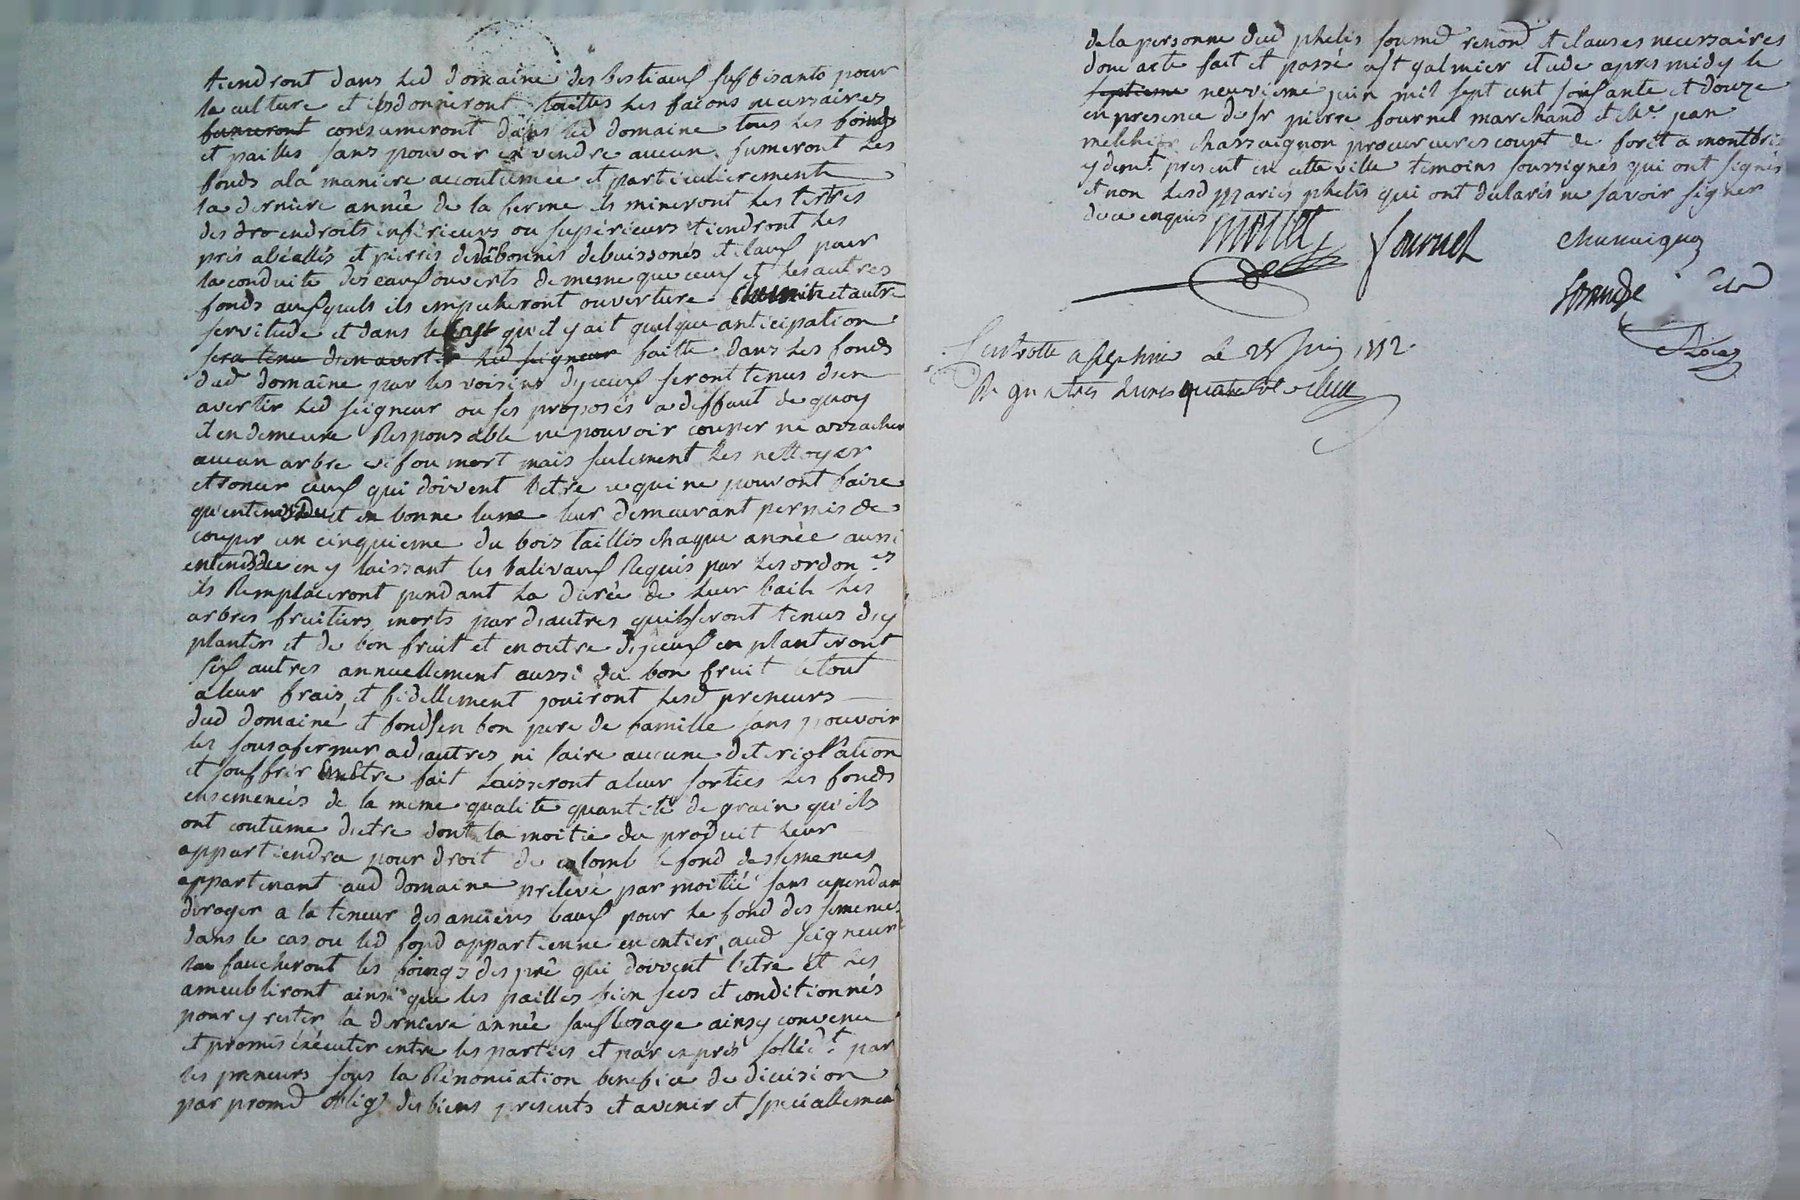 tiendront dans led domaine des bestiaux suffisants pour
la culture et ils donneront touttes les façons necessaires
fumeront consumeront dans led domaine tous les foings
et pailles sans pouvoir en vendre aucun fumeront les
fonds ala maniere accoutumée et particulierement
la derniere année de la ferme ils mineront les tertres
des dro endroits inferieurs ou superieurs tiendront les
prés abéallés et pierrés buissonnés et eaux pour
la conduite des eaux ouverts de mesme que ceux et les autres
fonds auxquels ils empecheront ouverture et autre
servitude et dans le cas qu'il y ait quelque anticipation
sera tenu d'en avertir led seigneur faitte dans les fonds
dud domaine par les voisins d'yceux seront tenus d'en
avertir led seigneur ou ses preposés a deffaut de quoy
il en demeure Responsable ne pouvoir couper ne arracher
aucun arbre vif ou mort mais seulement les nettoyer
et toncer ceux qui doivent l'etre ce qui ne pouront faire
qu'en tems dû et en bonne lune leur demeurant permis de
couper un cinquieme du bois taillis chaque année aussi
en tems dû en y laissant les balivaux Requis par les ordon.es
ils Remplaceront pendant la durée de leur bail les
arbres fruitiers morts par d'autres quils seront tenus d'y
planter et de bon fruit et en outre d'yceux en planteront
six autres annuellement aussi de bon fruit le tout
a leur frais et fidellement jouiront lesd preneurs
dud domaine et fonds en bon pere de famille sans pouvoir
les sousafermer ad'autres ni faire aucune deterioration
et souffrir etre fait laisseront a leur sorties les fonds
ensemencés de la meme qualité quantité de grain qu'ils
ont coutume d'etre dont la moitié du produit leur
appartiendra pour droit de colomb le fond des semences
appartenant aud domaine prelevé par moitié sans ependan
deroger a la teneur des anciens baux pour le fond des semences
dans le cas ou led fond appartienne en entier aud seigneur
faucheront les foings des pré qui doivent l'etre et les
ameubliront ainsi que les pailles bien secs et conditionnés
pour y rester la derniere année sauf l'usage ainsy convenu
et promis exécuter entre les parties et par exprés sollid.t par
les preneurs sous la Rénonciation benefice de division
par promd oblig. des biens presents et avenir et speciallement
de la personne dud phelis soumd renond et clauses necessaires
dont acte fait et passé a st galmier etude apres midy le
septieme neuvieme juin mil sept cent soixante et douze
en presence de sr pierre fournel marchand et Me. jean
melchior chassaignon procureur es court de forêt a montbris
y demt. present en cette ville temoins soussignés qui ont signés
et non lesd mariés phelis qui ont declarés ne savoir signer
de ce enquis
fournel
chassaignon
le 1772
quatre livres